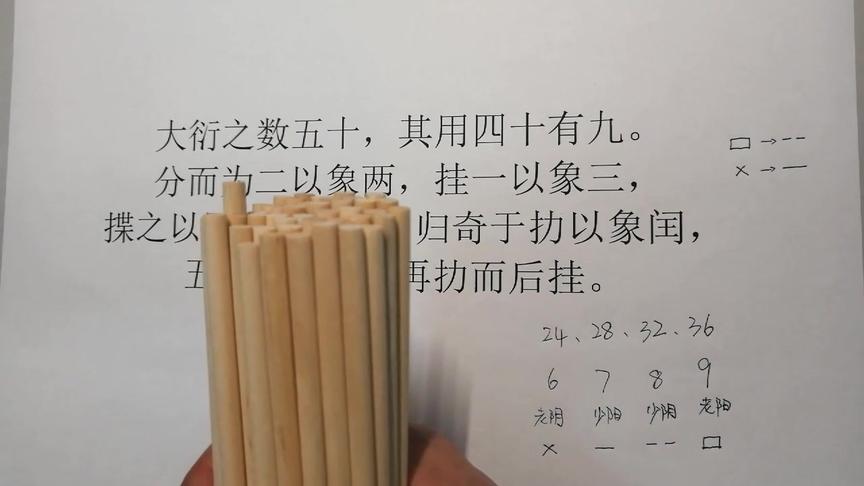 大衍之数五十，其用四十有九。
分而为二以象两，挂一以象三，
揲之以 归奇于扐以象闰，
五 再扐而后挂。
□→--
×→—
24、28、32、36
6 7 8 9
老阴 少阳 少阴 老阳
× — -- □